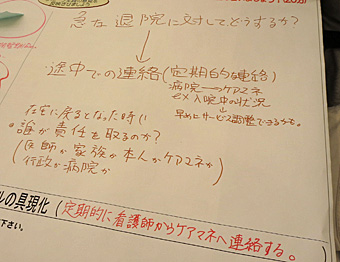 急な退院に対して、どうするか?
途中での連絡(定期的な連絡)
病院→ケアマネ
ex入院中の状況
早めにサービス調整できるかも。
在宅に戻るとなった時に
誰が責任を取るのか?
(医師か家族か本人かケアマネか
行政か病院か
ルの具現化(定期的に看護師からケアマネへ連絡する。
下さい。